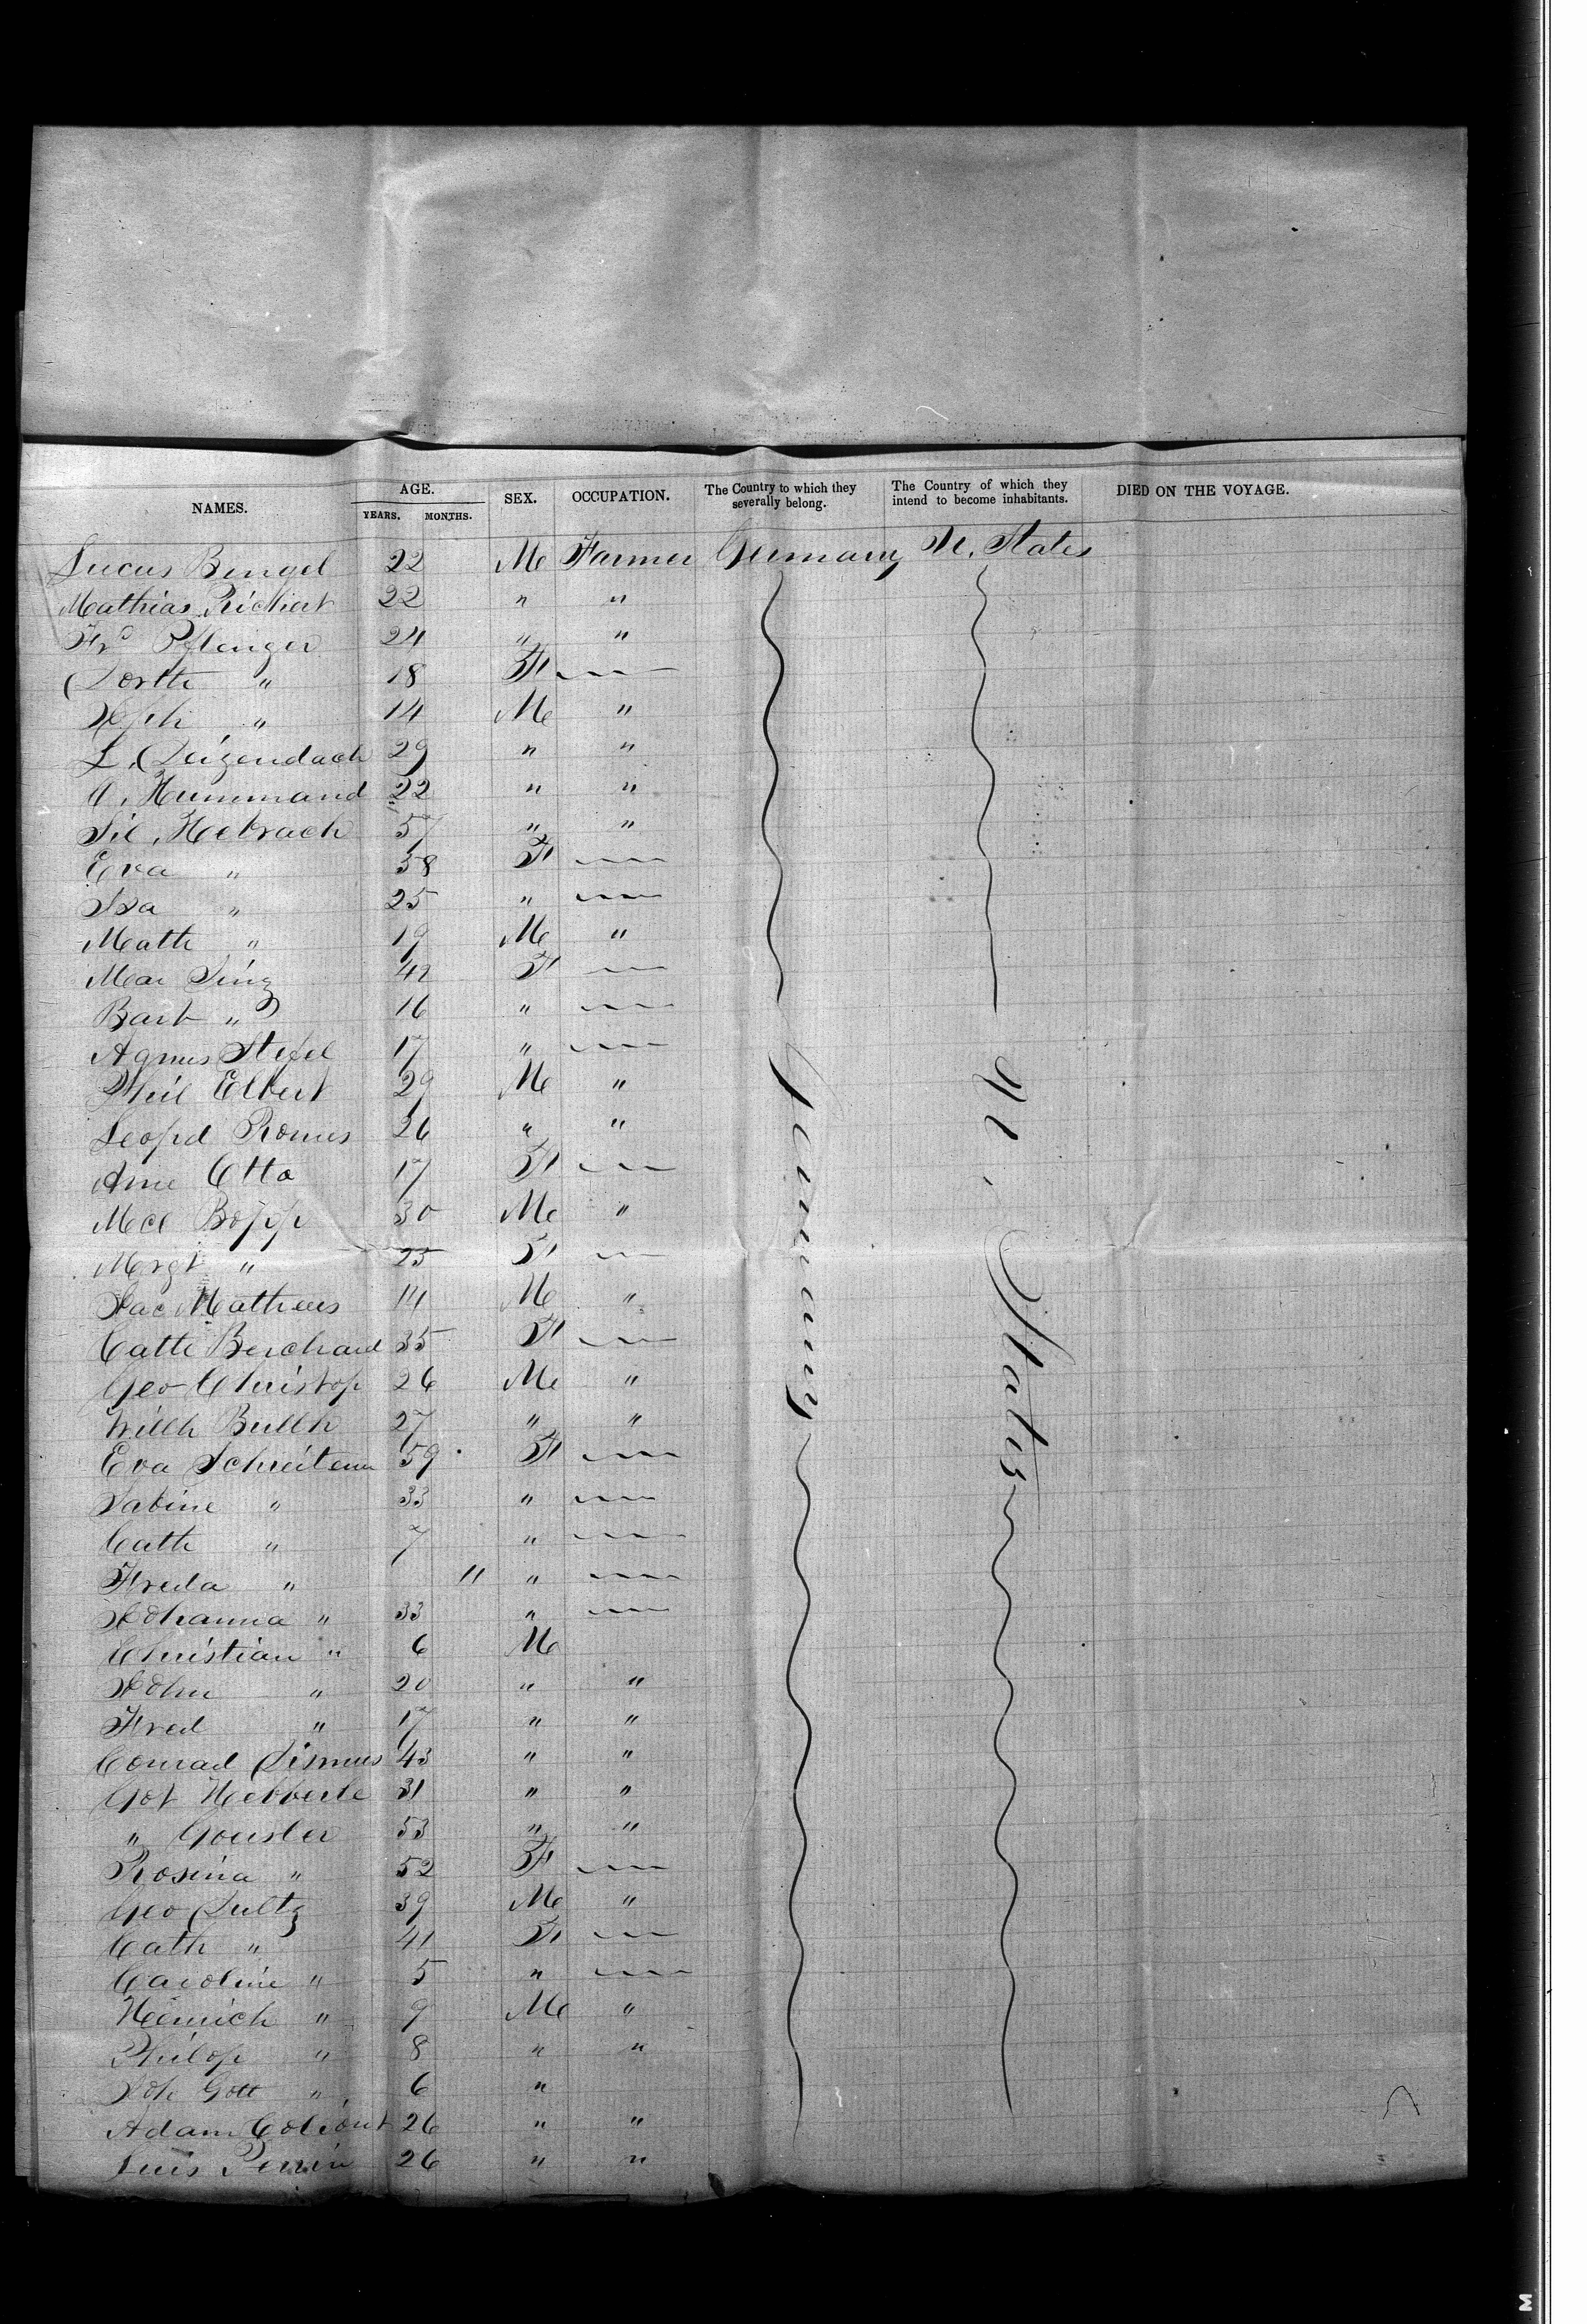 NAMES. AGE. YEARS. MONTHS. SEX. OCCUPATION. The Country to which they severally belong. The Country of which they intend to become inhabitants. DIED ON THE VOYAGE.
Lucas Bengel 22 M Farmer Germany U. States
Mathias Richert 22 " "
Frd Pflenger 24 " "
Dorth " 18 F
" 14 M "
L. Deizendach 29 " "
C. Hummand 22 " "
Sil. Hebrach 57 " "
Eva " 58 F
Isa " 25 "
Math " 19 M "
Mar Sing 42 F
Barb " 16 "
Agnes Stefel 17 "
Phil Elbert 29 M " Germany U. States
Leopd Romes 26 " "
Ame Otto 17 F
Mcl Bopp 30 M "
Mrgt " 25 F
Jac Matheus 14 M "
Cath Berchard 35 F
Geo Christop 26 M "
Willh Bullh 27 " "
Eva 59 F
Sabine " 33 "
Cath " 7 "
Freda " 11 "
Johanna " 33 "
Christian " 6 M
John " 20 " "
Fred " 17 " "
Conrad Dimus 43 " "
Got Hebberle 31 " "
" Gousler 53 " "
Rosina " 52 F
Geo Dultz 39 M "
Cath " 41 F
Caroline " 5 "
Heinrich " 9 M "
Philop " 8 " "
Joh Gott " 6 "
Adam 26 " "
Luis Perrin 26 " "
M